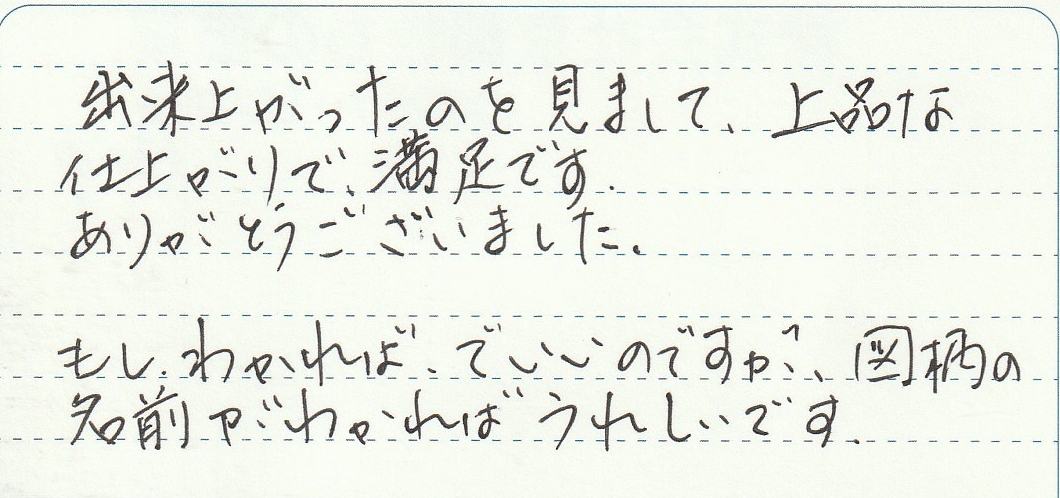 出来上がったのを見まして、上品な
仕上がりで、満足です.
ありがとうございました.
もし、わかれば、でいいのですが、図柄の
名前がわかればうれしいです.